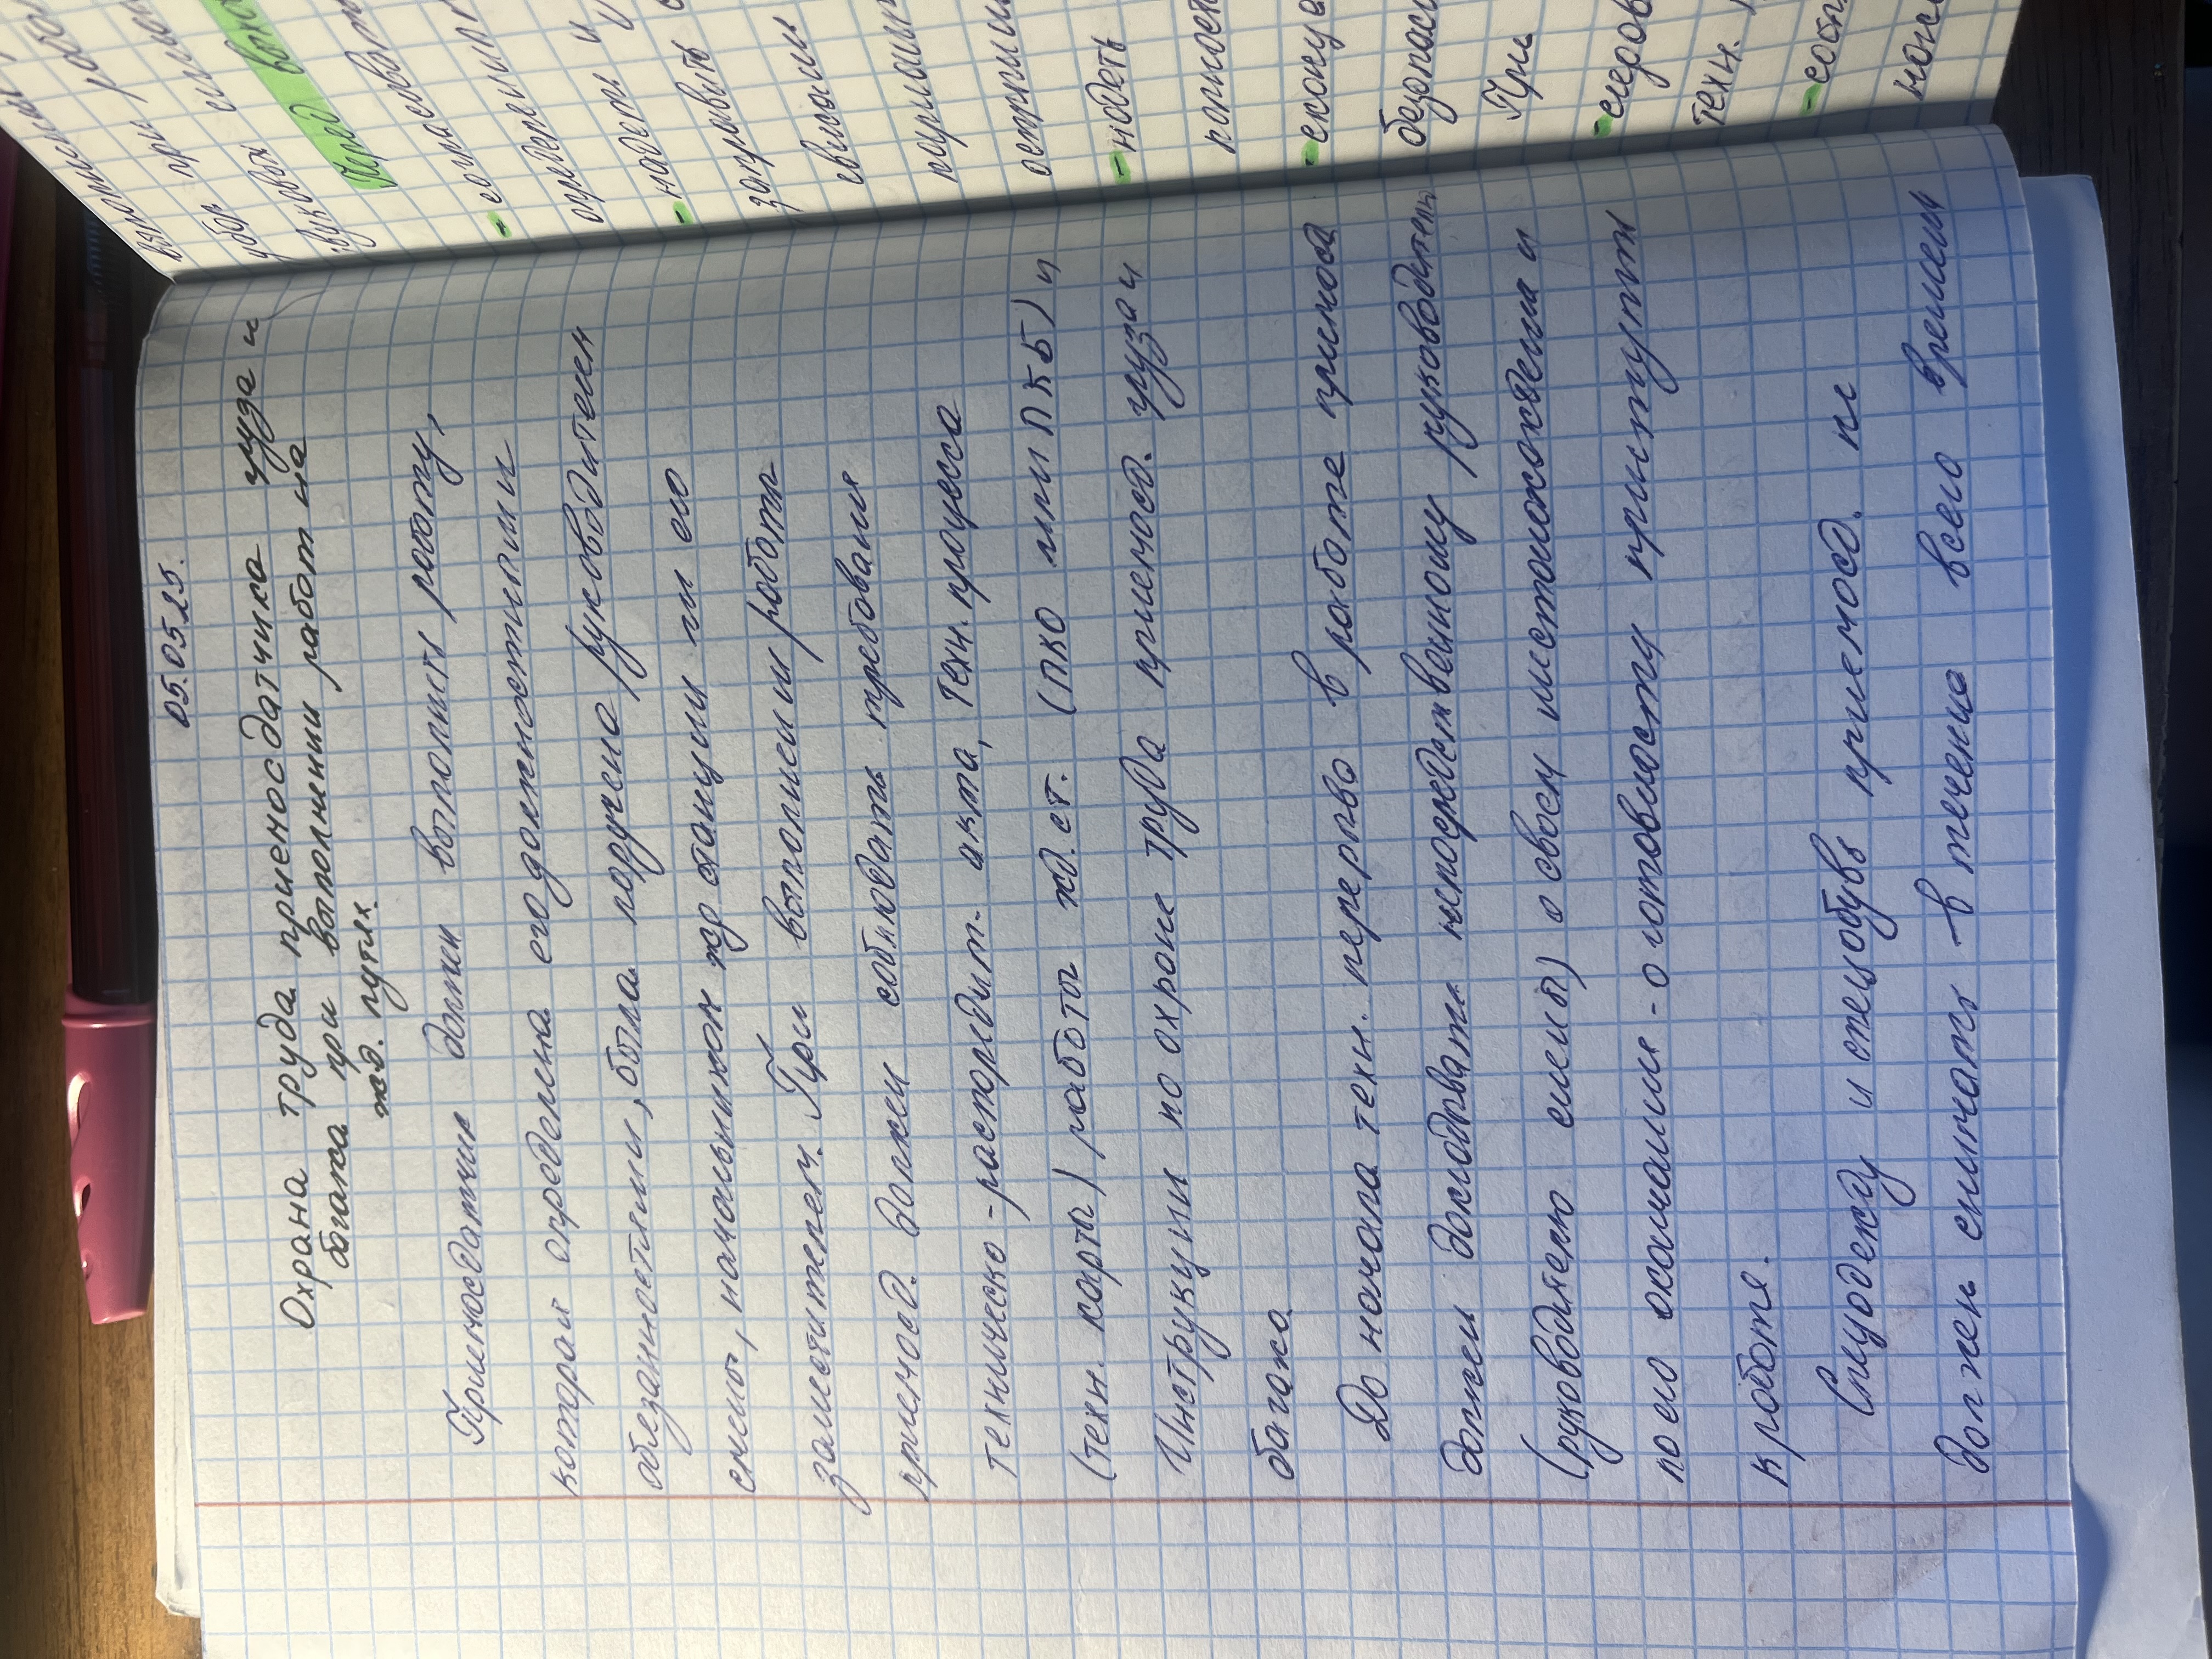 05.05.25.
Охрана труда приемосдатчика груза и
багажа при выполнении работ на
жд. путях.
Приемосдатчик должен выполнять работу,
которая определена его должностными
обязанностями, была поручена руководителем
смены, начальником жд станции ли его
заместителем. При выполнении работы
приемосд. должен соблюдать требования
техническо-распорядит. акта, техн. процесса
(техн. карты) работы жд. ст. (ПКО или ПКБ) и
Инструкции по охране труда приемосд. груза и
багажа
До начала техн. перерыва в работе приемосд
должен докладывать непосредственному руководителю
(руководителю смены) о своем местонахождении и
по его окончании - о готовности приступить
к работе.
Спецодежду и спецобувь приемосд. не
должен снимать в течение всего времени
Перед
надеть
При
техн.